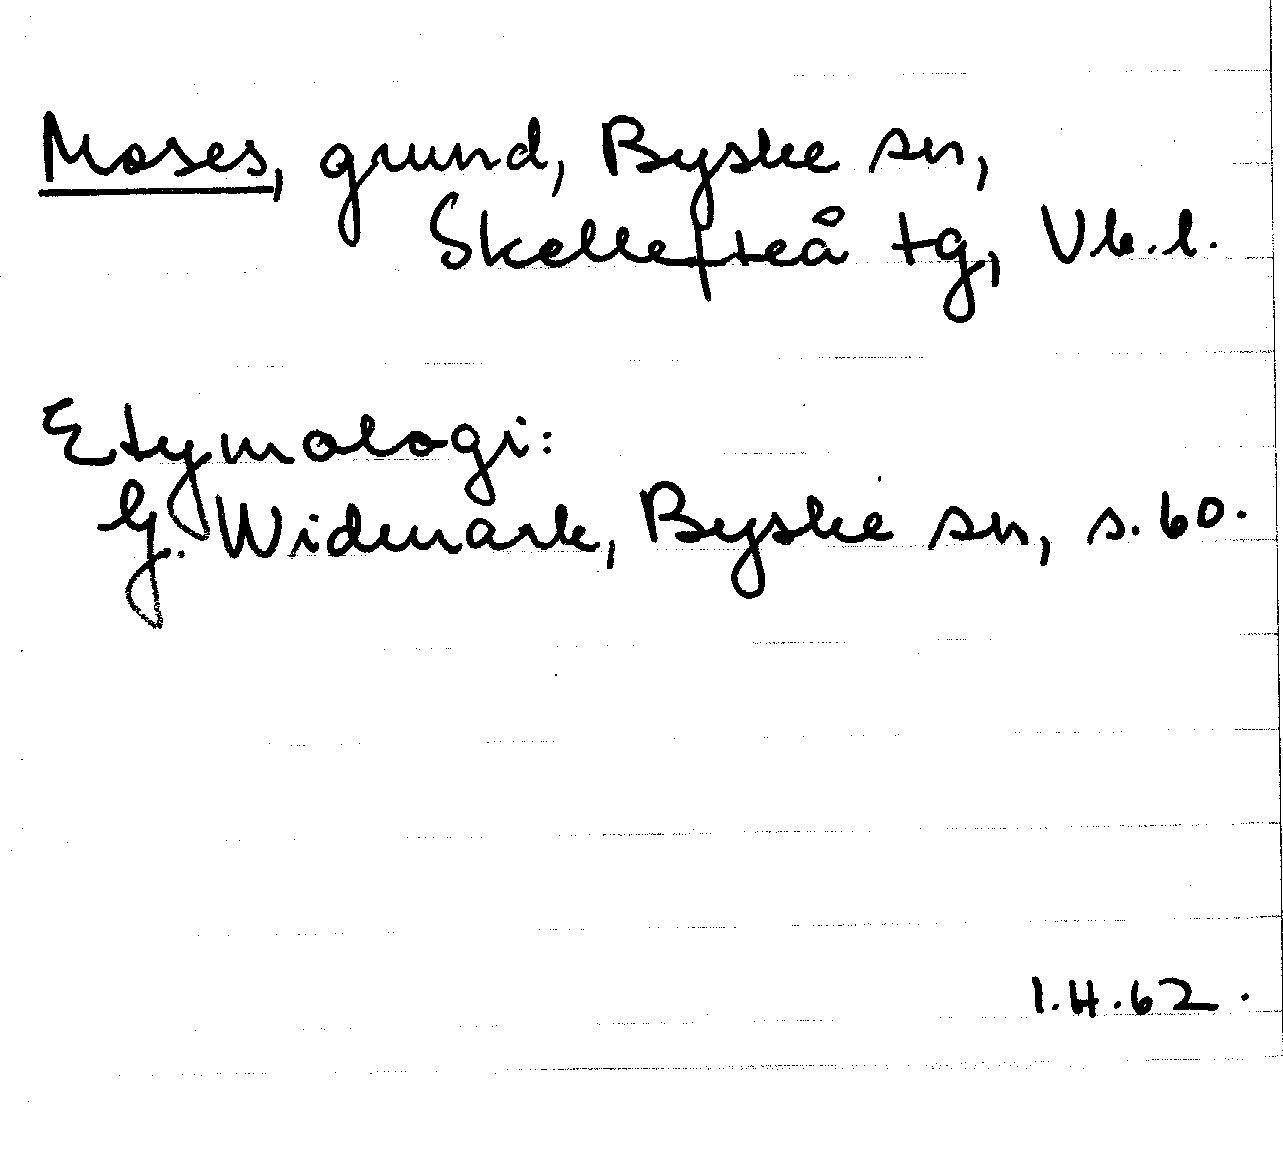 Moses, grund, Byske sn,
Skellefteå tg, Vb.l.
Etymologi:
G. Widmark, Byske sn, s. 60.
I.H. 62.